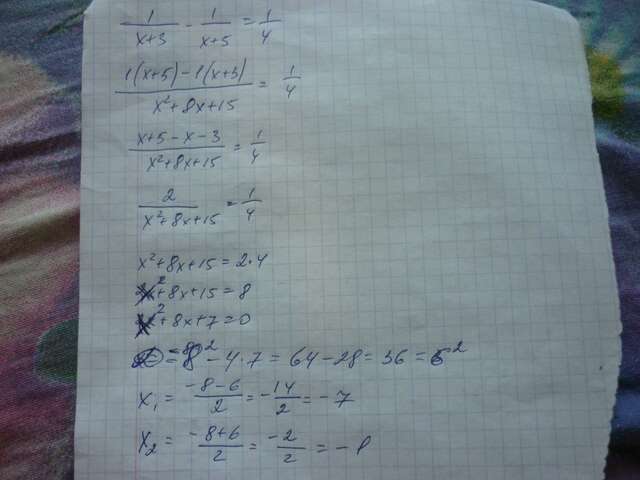 1/(x+3) - 1/(x+5) = 1/4
(1(x+5)-1(x+3))/(x²+8x+15) = 1/4
(x+5-x-3)/(x²+8x+15) = 1/4
2/(x²+8x+15) = 1/4
x²+8x+15=2·4
x²+8x+15=8
x²+8x+7=0
=8²-4·7=64-28=36=6²
x₁ = (-8-6)/2 = -14/2 = -7
x₂ = (-8+6)/2 = -2/2 = -1